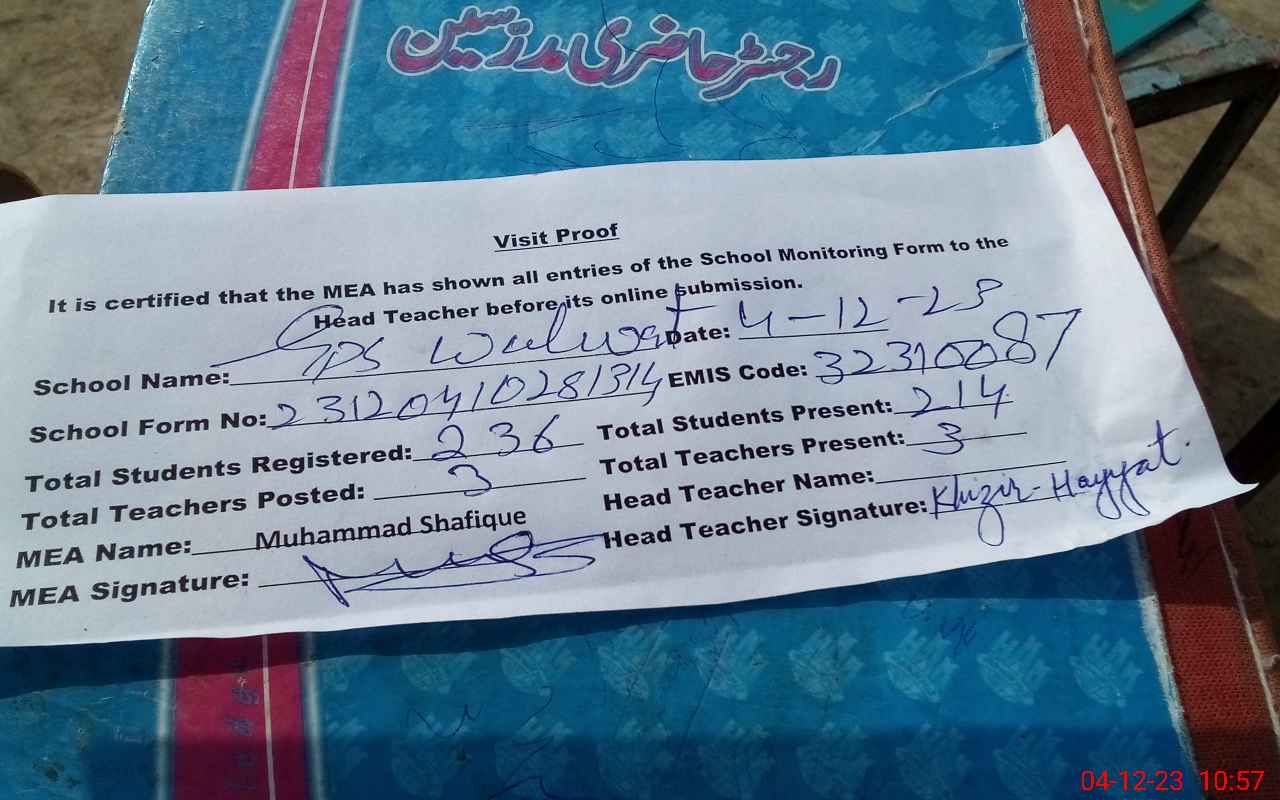 رجسٹر حاضری مدرّسین
Visit Proof
It is certified that the MEA has shown all entries of the School Monitoring Form to the
Head Teacher before its online submission.
School Name: GPS Date: 4-12-23
School Form No: 23120410281314 EMIS Code: 32310087
Total Students Registered: 236 Total Students Present: 214
Total Teachers Posted: 3 Total Teachers Present: 3
MEA Name: Muhammad Shafique Head Teacher Name:
MEA Signature: Head Teacher Signature: Khizir-Hayyat.
04-12-23 10:57